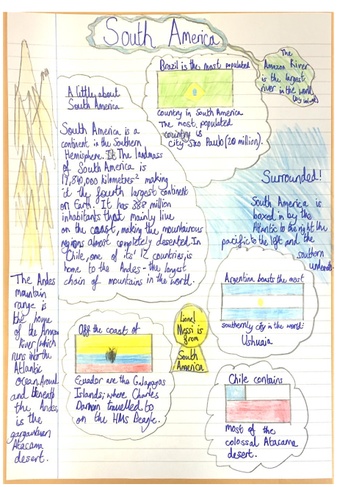 South America
The
Amazon River
is the largest
river in the world
Brazil is the most populated
country in South America
The most populated
country is
city São Paulo (20 million).
A little about
South America
South America is a
continent in the Southern
Hemisphere. The landmass
of South America is
17,840,000 kilometres² making
it the fourth largest continent
on Earth. It has 388 million
inhabitants that mainly live
on the coast, making the mountainous
regions almost completely deserted. In
Chile, one of its' 12 countries, is
home to the Andes - the largest
chain of mountains in the world.
Surrounded!
South America is
boxed in by the
Atlantic to the right the
pacific to the left and the
southern
The Andes
mountain
range is
the
of the Amazon
River, which
runs into the
Atlantic
ocean. Around
and beneath
the Andes,
is the
gargantuan
Atacama
desert.
Argentina boasts the most
southernly city in the world:
Ushuaia
Lionel
Messi is
from
South
America
Off the coast of
Ecuador are the Galapagos
Islands; where Charles
Darwin travelled to
on the HMS Beagle.
Chile contains
most of the
colossal Atacama
desert.